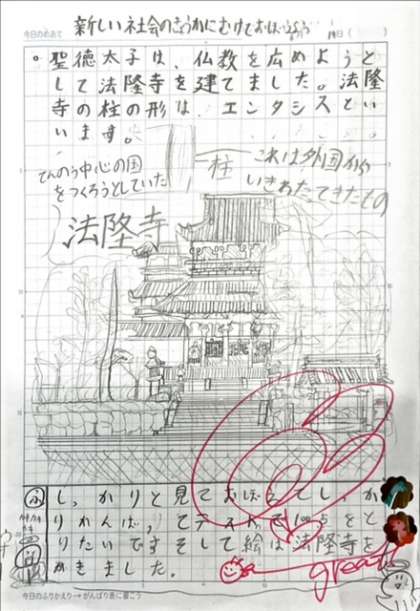 今日のめあて
新しい社会の
日( )
。聖徳太子は、仏教を広めようと
して法隆寺を建てました。法隆
寺の柱の形は、エンタシスとい
います。
てんのう中心の国
をつくろうとしていた
柱
これは外国から
法隆寺
ふ
しっかりと見ておぼえてしっか
りがんばってテストで100点をと
りたいですそして絵は法隆寺を
かきました。
great
今日のふりかえり→がんばり表に書こう